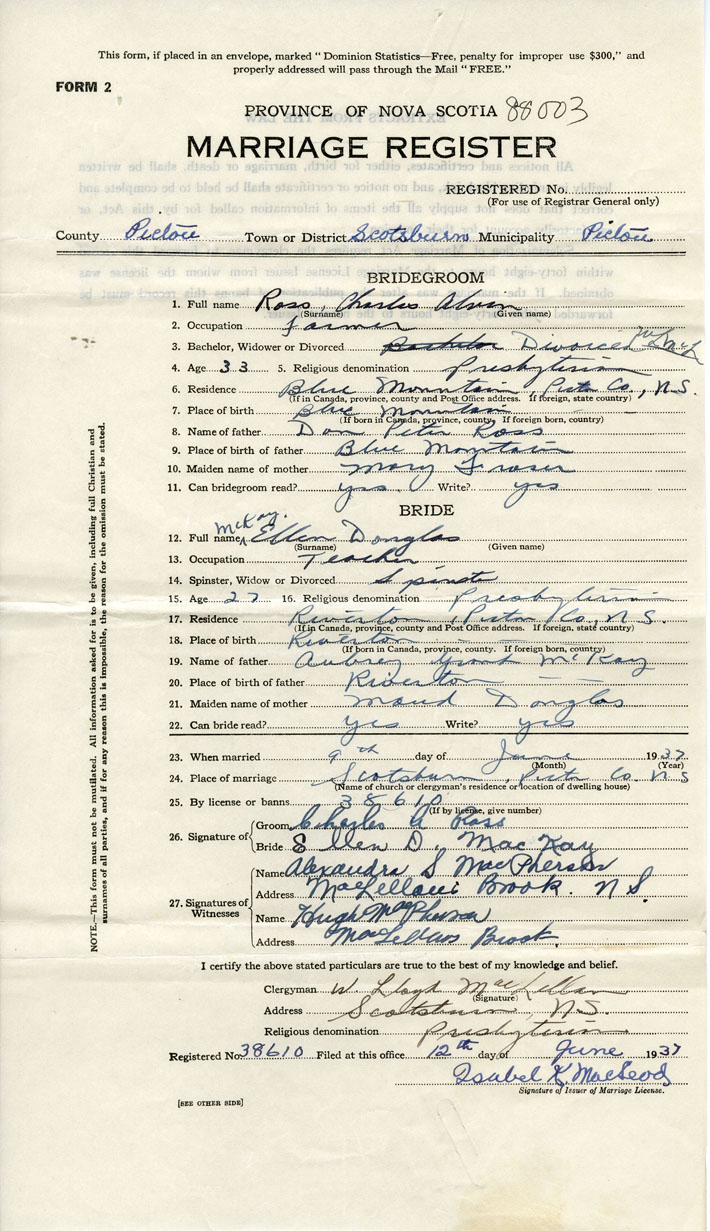 This form, if placed in an envelope, marked "Dominion Statistics—Free, penalty for improper use $300," and
properly addressed will pass through the Mail "FREE."
FORM 2
PROVINCE OF NOVA SCOTIA 88003
MARRIAGE REGISTER
REGISTERED No.
(For use of Registrar General only)
County Pictou Town or District Scotsburn Municipality Pictou
BRIDEGROOM
1. Full name Ross, Charles Alvan
(Surname) (Given name)
2. Occupation Farmer
3. Bachelor, Widower or Divorced Bachelor Divorced
4. Age 33 5. Religious denomination Presbyterian
6. Residence Blue Mountain, Pictou Co., N.S.
(If in Canada, province, county and Post Office address. If foreign, state country)
7. Place of birth Blue Mountain
(If born in Canada, province, county. If foreign born, country)
8. Name of father Dan Peter Ross
9. Place of birth of father Blue Mountain
10. Maiden name of mother Mary Fraser
11. Can bridegroom read? yes Write? yes
BRIDE
McKay,
12. Full name Ellen Douglas
(Surname) (Given name)
13. Occupation Teacher
14. Spinster, Widow or Divorced Spinster
15. Age 27 16. Religious denomination Presbyterian
17. Residence Riverton, Pictou Co., N.S.
(If in Canada, province, county and Post Office address. If foreign, state country)
18. Place of birth Riverton
(If born in Canada, province, county. If foreign born, country)
19. Name of father Aubrey Grant McKay
20. Place of birth of father Riverton
21. Maiden name of mother Maud Douglas
22. Can bride read? yes Write? yes
23. When married 9th day of June 1937
(Month) (Year)
24. Place of marriage Scotsburn, Pictou Co. N S
(Name of church or clergyman's residence or location of dwelling house)
25. By license or banns 38610
(If by license, give number)
26. Signature of Groom Charles A Ross
Bride Ellen D. MacKay
27. Signatures of Witnesses Name Alexandra S MacPherson
Address MacLellans Brook. N S.
Name Hugh MacPherson
Address MacLellans Brook.
I certify the above stated particulars are true to the best of my knowledge and belief.
Clergyman W. Lloyd MacLellan
(Signature)
Address Scotsburn, N.S.
Religious denomination Presbyterian
Registered No. 38610 Filed at this office 12th day of June 1937
Isabel K. MacLeod
Signature of Issuer of Marriage License.
[SEE OTHER SIDE]
NOTE.—This form must not be mutilated. All information asked for is to be given, including full Christian and
surnames of all parties, and if for any reason this is impossible, the reason for the omission must be stated.